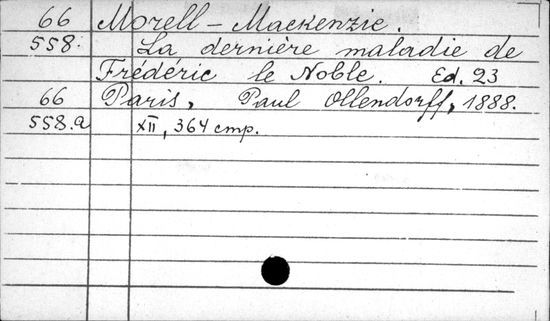 66 Morell - Mackenzie.
558: La dernière maladie de
Frédéric le Noble. Ed. 23
66 Paris, Paul Ollendorff, 1888.
558.a XII, 364 стр.